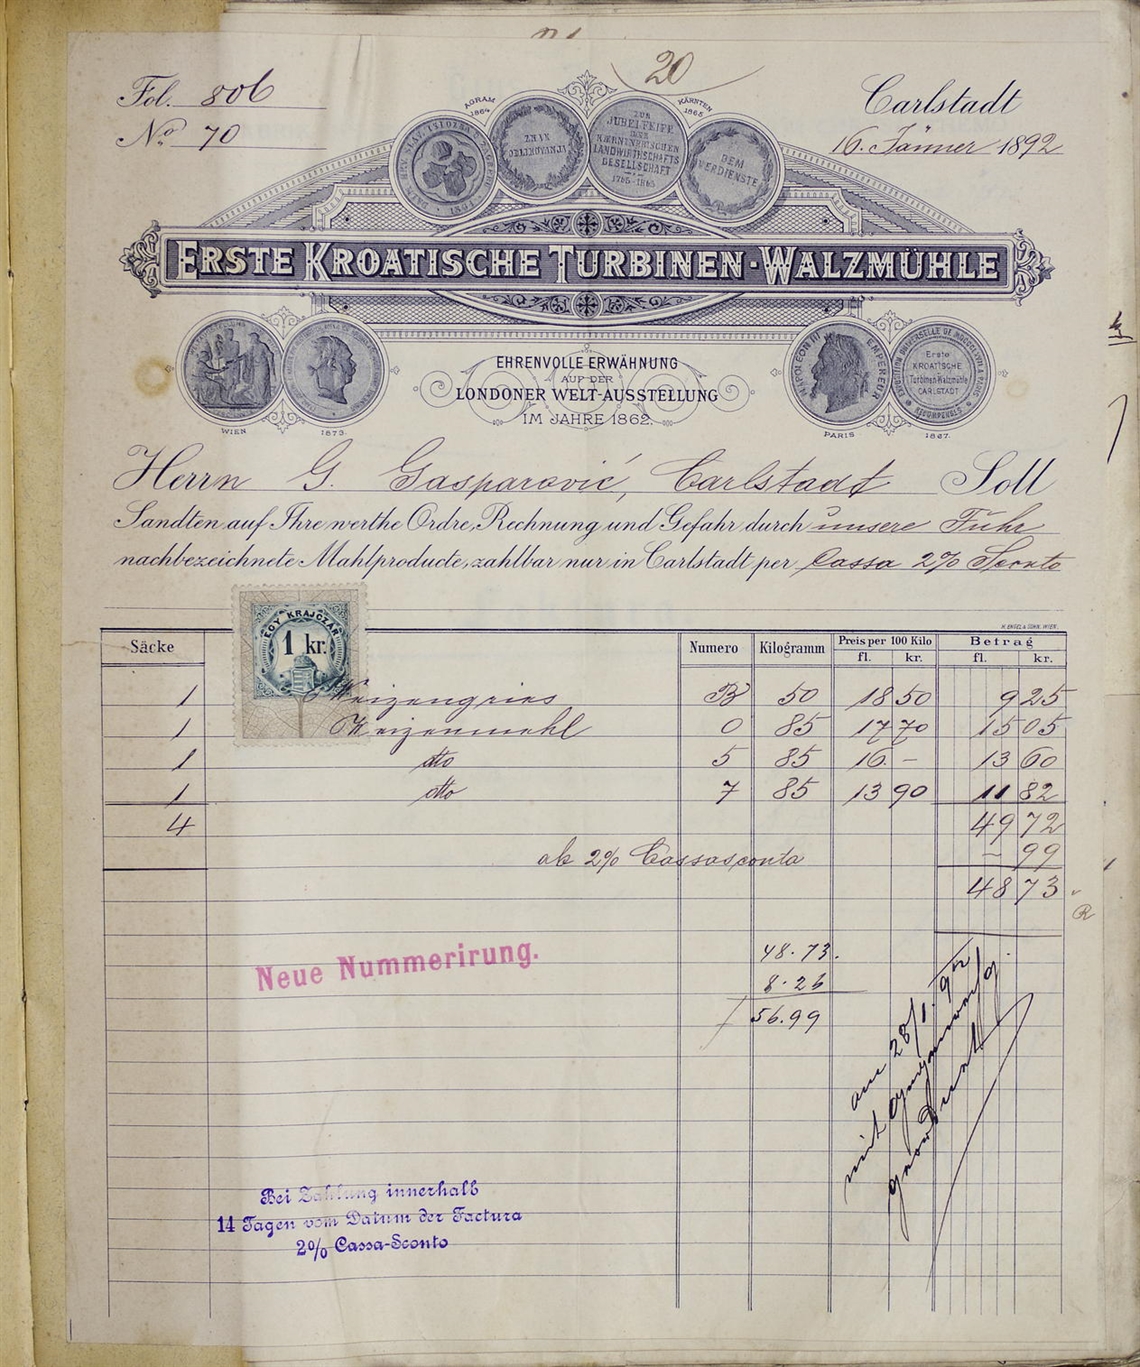 20
Fol. 806
No 70
Carlstadt
16. Jänner 1892
AGRAM 1864
KÄRNTEN 1865
ZUR JUBELFEIER DER KAERNTNERISCHEN LANDWIRTHSCHAFTS GESELLSCHAFT 1765-1865
DEM VERDIENSTE
ERSTE KROATISCHE TURBINEN-WALZMÜHLE
WIEN 1873.
EHRENVOLLE ERWÄHNUNG
AUF DER
LONDONER WELT-AUSSTELLUNG
IM JAHRE 1862.
NAPOLEON III EMPEREUR
Erste KROATISCHE Turbinen-Walzmühle CARLSTADT
RÉCOMPENSES
PARIS 1867.
Herrn G. Gasparović, Carlstadt Soll
Sandten auf Ihre werthe Ordre, Rechnung und Gefahr durch unsere Fuhr
nachbezeichnete Mahlproducte, zahlbar nur in Carlstadt per Cassa 2% Sconto
EGY KRAJCZÁR
1 kr.
H. ENGEL & SOHN, WIEN.
Säcke Numero Kilogramm Preis per 100 Kilo Betrag
fl. kr. fl. kr.
1 Weizengries B 50 18 50 9 25
1 Weizenmehl 0 85 17 70 15 05
1 dto 5 85 16 - 13 60
1 dto 7 85 13 90 11 82
4 49 72
ab 2% Cassasconto - 99
48 73
48.73.
8.26
56.99
Neue Nummerirung.
am 28/1. 92
mit
Bei Zahlung innerhalb
14 Tagen vom Datum der Factura
2% Cassa-Sconto